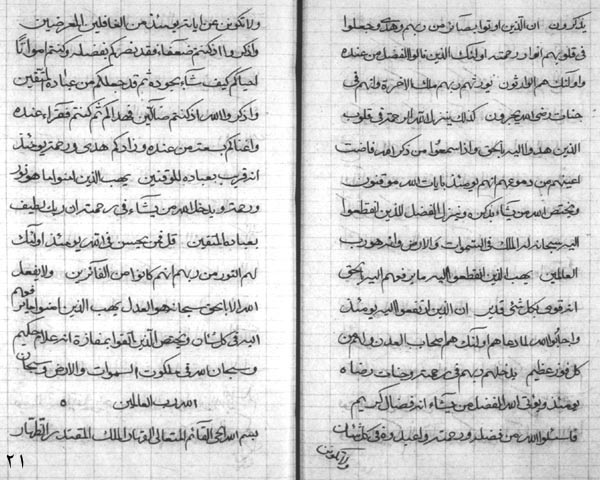 يذكرون ان الذين اوتوا بصائر من ربهم وهدى وجعلوا
في قلوبهم انوار رحمته اولئك الذين نالوا الفضل من عنده
واولئك هم الوارثون يورثهم ربهم ملك الاخرة وانهم في
جنات رضى الله يحبرون كذلك ينزل الله الرحمة في قلوب
الذين هدوا اليه بالحق واذا سمعوا من ذكر الله فاضت
اعينهم من دموعهم انهم يومئذ بايات الله موقنون
ويختص الله من يشاء بذكره وينزل الفضل للذين انقطعوا
اليه سبحانه له الملك في السموات والارض وانه هو رب
العالمين يهب الذين انقطعوا اليه ما يرفعهم اليه بالحق
انه قوي بكل شئ قدير ان الذين ارتفعوا اليه يومئذ
واجابوا الله لما دعاهم اولئك هم اصحاب العدن ولهم من
كل فوز عظيم يدخلهم ربهم في رحمته وجنات رضاه
يومئذ ويؤتي الله الفضل من يشاء انه فضال كريم
فاسئلوا الله من فضله ورحمته واعبدوه في كل شان
ولا تكونن
ولا تكونن عن اياته يومئذ من الغافلين المعرضين
واذكروا اذ كنتم ضعفاء فقد نصركم بفضله وكنتم امواتا
احياكم كيف شاء بجوده ثم قد جعلكم من عباده المتقين
واذكروا الله اذ كنتم ضالين فهداكم ثم كنتم فقراء عنده
واغناكم بعد من عنده وزادكم هدى ورحمة يومئذ
انه قريب بعباده الموقنين يهب الذين امنوا ما هو نور
ورحمة ويدخل الله من يشاء في رحمته ان ربك لطيف
بعباده المتقين قل فمن يحسن في القدر يومئذ اولئك
لهم النور من ربهم انهم كانوا من الفائزين ولا يفعل
الله الا بالحق سبحانه هو العدل يهب الذين امنوا ما يرفعهم
اليه في كل شان ويختص الذين اتقوا بمفازة انه علام حكيم
وسبحان الله في ملكوت السموات والارض وسبحان
الله رب العالمين ٥
بسم الله الحي القائم المتعالي القهار الملك المقتدر الظهار
٢١